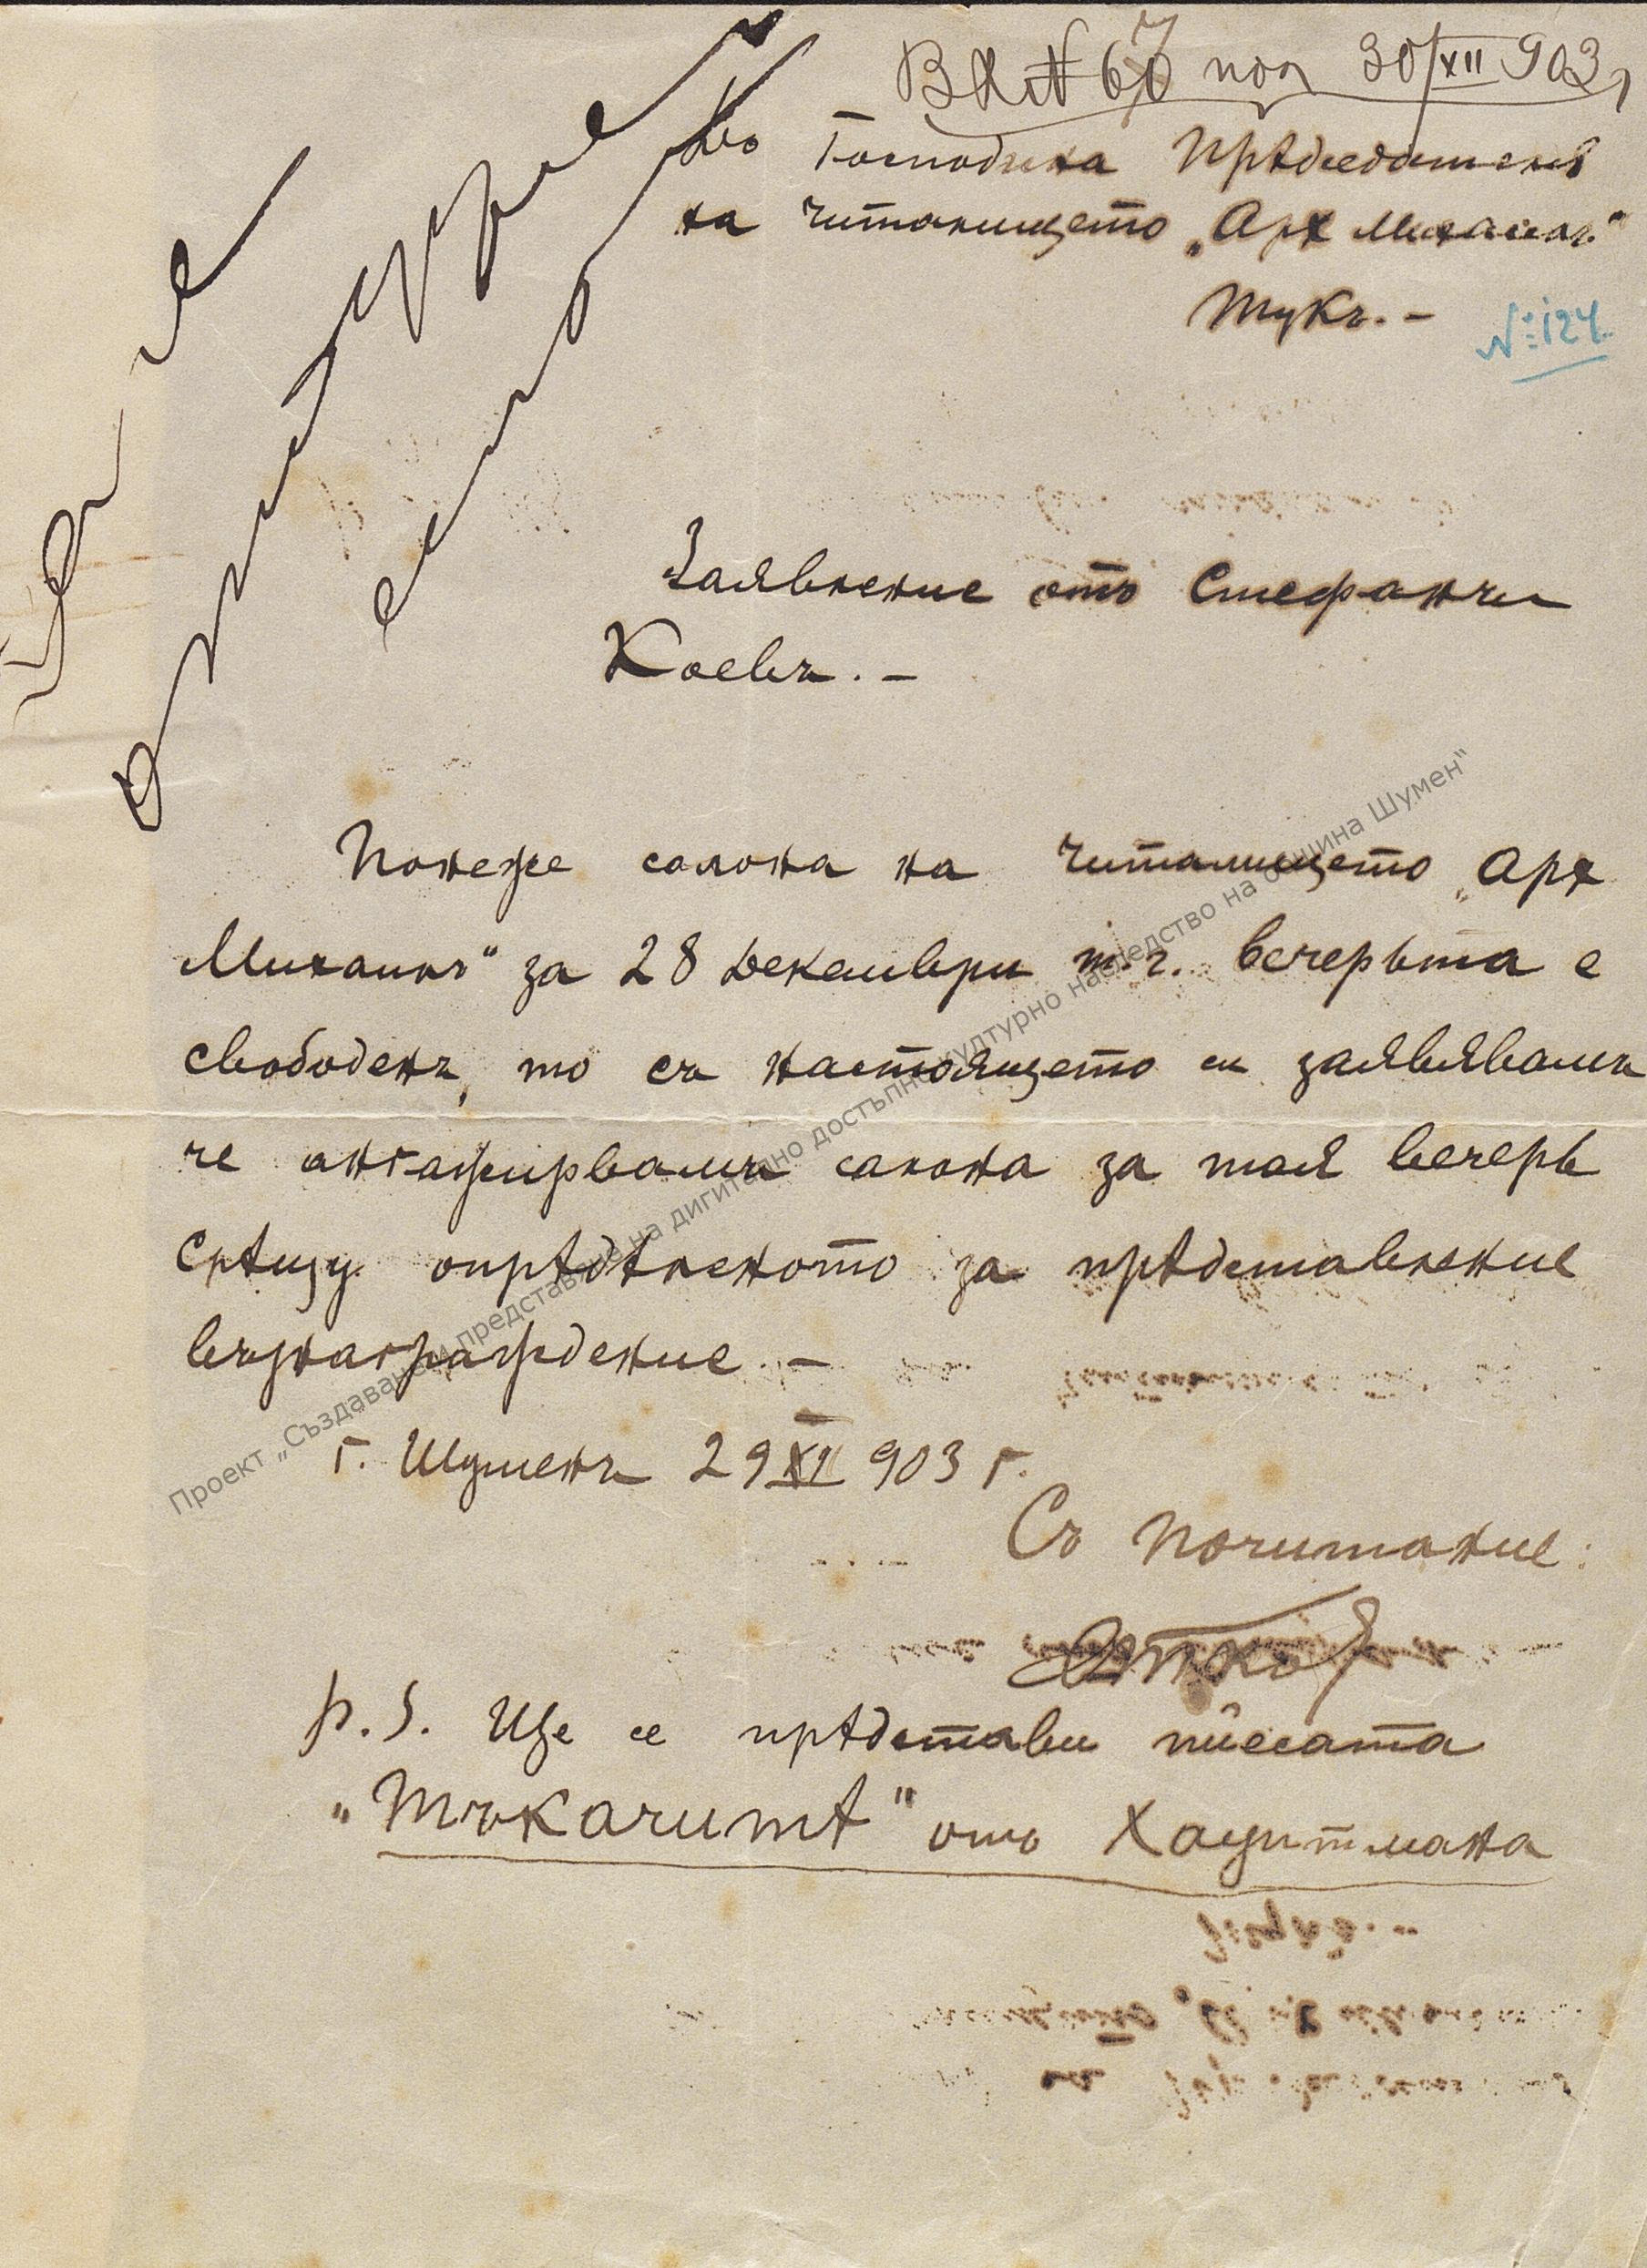 Вх № 67 пол 30/XII 903 г
До Господина Прѣдседательтъ
на читалището „Арх Михаилъ“
Тукъ. –
№ 124.
Заявление отъ Стефанъ
Коевъ. –
Понеже салона на читалището „Арх
Михаилъ“ за 28 декември т. г. вечерьта е
свободенъ, то съ настоящето си заявявамъ
че ангажирвамъ салона за тая вечерь
срѣщу опрѣдѣленото за прѣдставление
възнаграждение. –
г. Шуменъ 29 XII 903 г.
Съ почитание:
P. S. Ще се прѣдстави пиесата
„Тъкачитѣ“ отъ Хауптмана
Проект „Създаване и представяне на дигитално достъпно културно наследство на община Шумен“